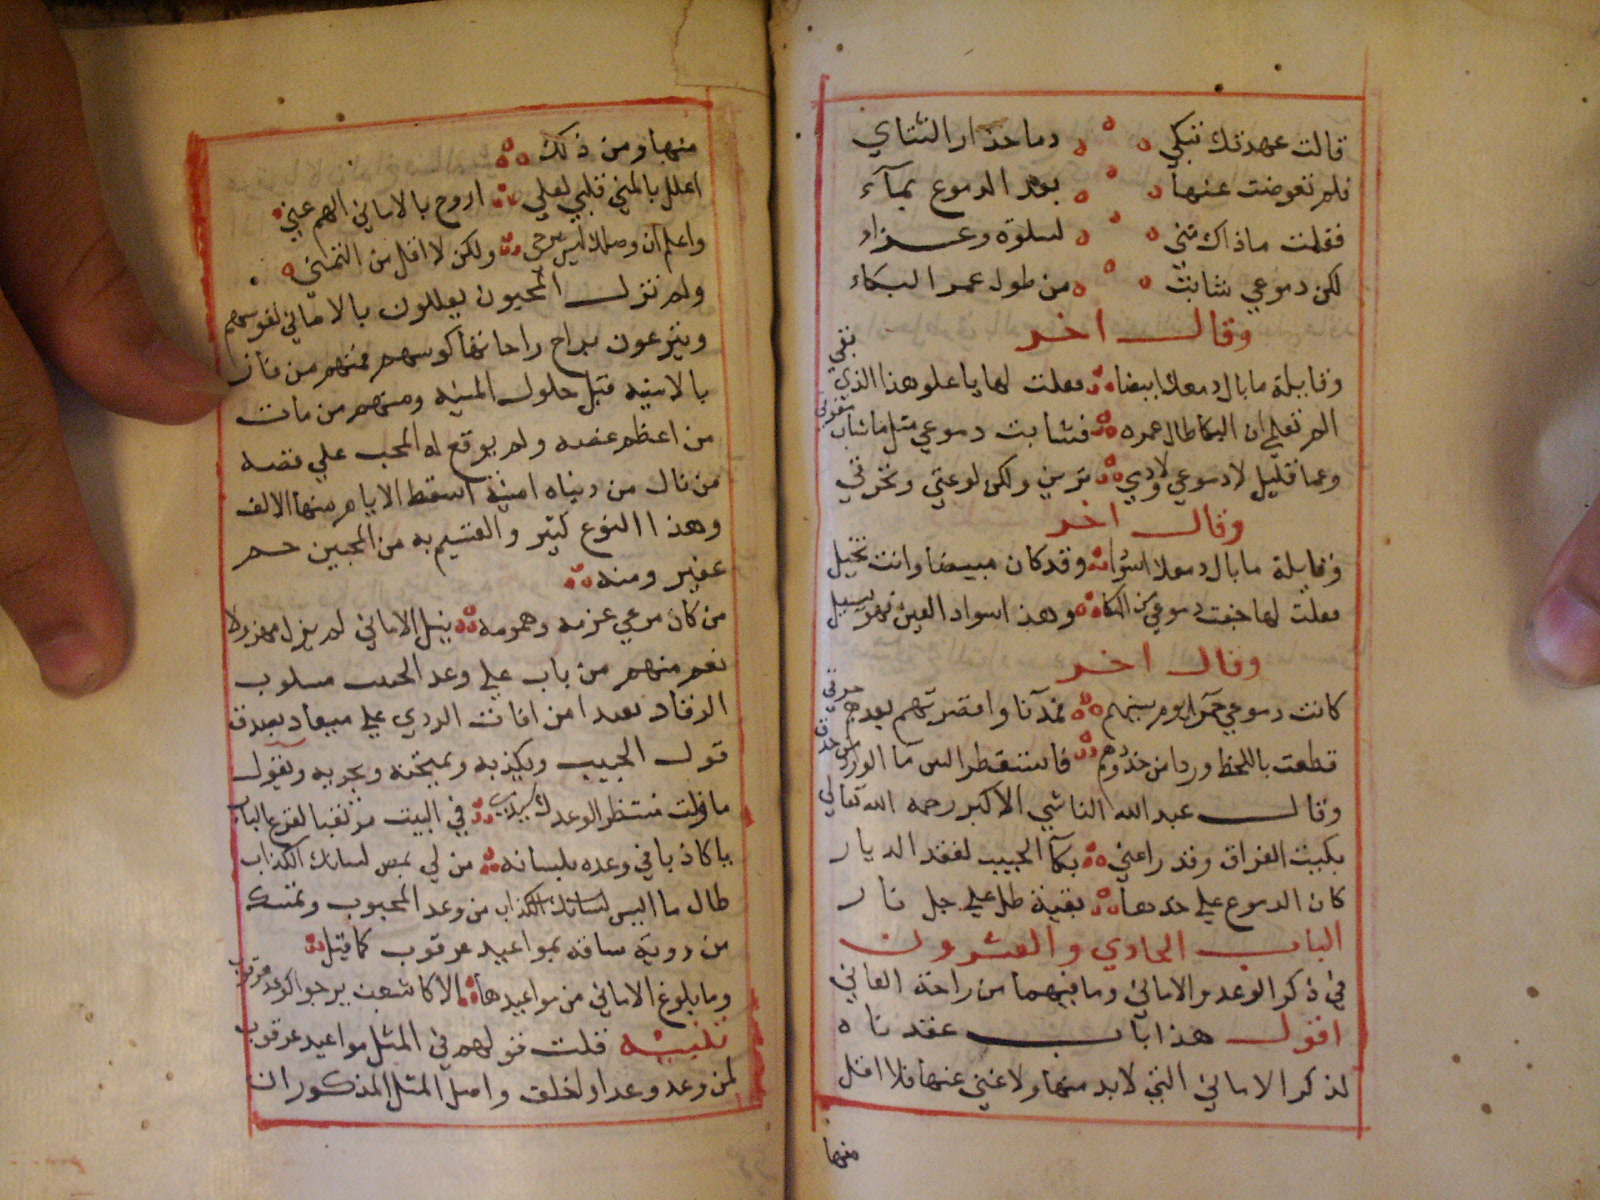 قالت عهدتك تبكي دما حذار التناي
فلم تعوضت عنها بعد الدموع بماء
فقلت ماذاك مني لسلوة وعزاء
لكن دموعي شابت من طول عمر البكاء
وقال اخر
وقايلة ما بال دمعك ابيضا فقلت لها يا علو هذا الذي بقي
الم تعلمي ان البكا طال عمره فشابت دموعي مثل ما شاب مفرقي
وعما قليل لا دموعي ولا دمي ترين ولكن لوعتي وتحرقي
وقال اخر
وقايلة ما بال دمعك اسودا وقد كان مبيضا وانت نحيل
فقلت لها جفت دموعي من البكا وهذا سواد العين فهو يسيل
وقال اخر
كانت دموعي حمرا يوم بينهم فمذ نأوا قصرتهم بعدهم حرقي
قطفت باللحظ وردا من خدودهم فاستقطر البين ما الورد من حدقي
وقال عبد الله الناشي الاكبر رحمه الله تعالي
بكيت الفراق وقد راعني بكآ الحبيب لفقد الديار
كان الدموع علي خدها بقية طل علي جلنار
الباب الحادي والعشرون
في ذكر الوعد والاماني وما فيهما من راحة العاني
اقول هذا باب عقدناه
لذكر الاماني التي لا بد منها ولا غني عنها فلا اقل
منها
منها ومن ذلك
اعلل بالمني قلبي لعلي اروح بالاماني الهم عني
واعلم ان وصلك ليس يرجي ولكن لا اقل من التمني
ولم تزل المحبون يعللون بالاماني نفوسهم
ويترعون براح راحاتها كوسهم فمنهم من فاز
بالامنية قبل حلول المنية ومنهم من مات
من اعظم غصه ولم يوقع له المحب علي قصه
من نال من دنياه امنية اسقط الايام منها الالف
وهذا النوع كثير والقسيم به من المحبين جم
غفير ومنه
من كان مرعي عزمه وهمومه نيل الاماني لم يزل مهزولا
نعم منهم من بات علي وعد الحبيب مسلوب
الرقاد بعد امن افات الردي علي ميعاد يصدق
قول الحبيب ويكذبه ويمتحنه ويجربه ويقول
ما زلت منتظر الوعدك في البيت مرتقبا لقرع الباب
يا كاذبا في وعده بلسانه من لي بمص لسانك الكذاب
طال ما البس لسانك الكذاب من وعد المحبوب وتمسك
من روية ساقه بمواعيد عرقوب كما قيل
وما بلوغ الاماني من مواعيدها الا كاشعب يرجو وعد عرقوب
تنبيه قلت قولهم في المثل مواعيد عرقوب
لمن وعد وعدا واخلف واصل المثل المذكور ان